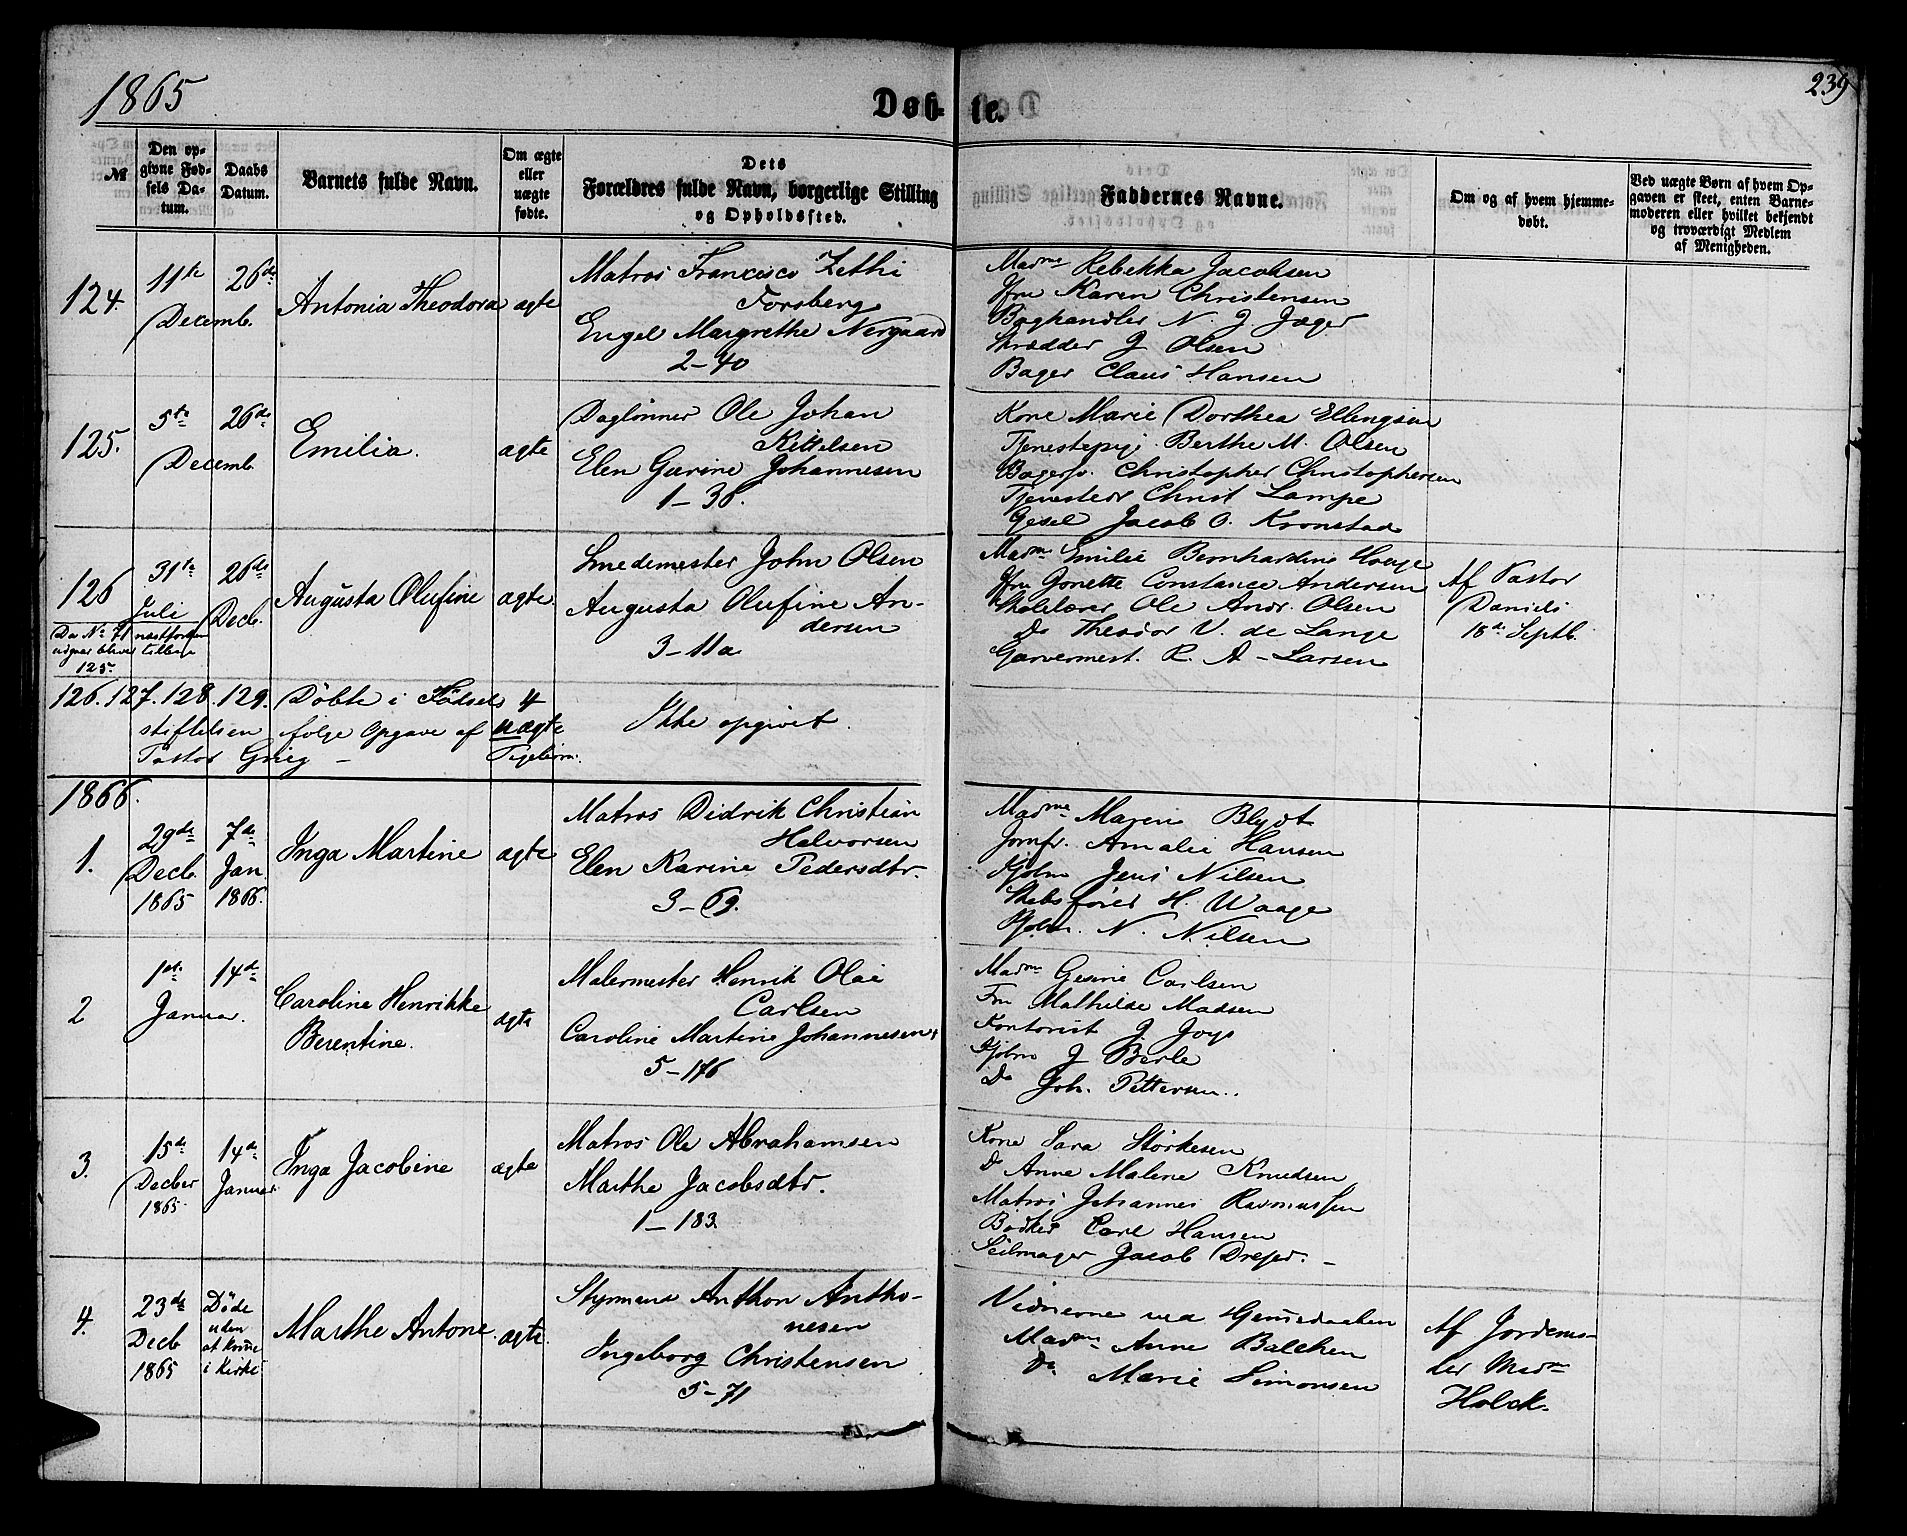 1865
Døb-
te.
239
№
Den op-
givne Fød-
sels Da-
tum.
Daabs
Datum.
Barnets fulde Navn.
Om ægte
eller
uægte
fødte.
Dets
Forældres fulde Navn, borgerlige Stilling
og Opholdssted.
Faddernes Navne.
Om og af hvem hjemme-
døbt.
Ved uægte Børn af hvem Op-
gaven er skeet, enten Barne-
moderen eller hvilket bekjendt
og troværdigt Medlem
af Menigheden.
124.
11te 26de
Decemb.
Antonia Theodora
ægte
Matros Francisco Zethi
Forsberg
Engel Margrethe Nergaard
2-40
Madme Rebekka Jacobsen
Jfru Karen Christensen
Boghandler N. J. Jæger
Skrædder J Olsen
Bager Claus Hansen
125.
5te 26de
Decemb.
Emilia.
ægte
Daglønner Ole Johan
Kittelsen
Elen Gurine Johannesen
1-36.
Kone Marie Dorthea Ellingsen
Tjenestepig. Berthe M. Olsen
Christopher Christophersen
Christ Lampe
Gesel Jacob O. Kronstad
126
31te Juli
26de Decb.
Augusta Olufine
ægte
Smedemester John Olsen
Augusta Olufine An-
dersen
3-11a
Madme Emilie Bernhardine Hauge
Jfru Jonette Constance Andersen
Skolelærer Ole Andr. Olsen
Do Theodor V. de Lange
Garvermest. R. A - Larsen
Af Pastor
Daniels
18de Septb.
Da No 71
125.
126. 127. 128. 129. Døbte i Fødsels
stiftelsen følge Opgave af
Pastor Grieg -
4
uægte
Pigebørn.
Ikke opgivet.
1866.
1.
29de
Decb.
1865
7de
Jan.
1866.
Inga Martine
ægte
Matros Didrik Christian
Halvorsen
Elen Karine Pedersdtr.
3-69.
Madme Maren Blydt
Jomfr. Amalie Hansen
Kjøbm Jens Nilsen
Skibsfører H. Waage
Kjøbm. N. Nilsen
2
1ste 14de
Januar.
Caroline Henrikke
Berentine.
ægte
Malermester Henrik Olai
Carlsen
Caroline Martine Johannesen,
5-176
Madme Gesine Carlsen
Fru Mathilde Madsen
Kontorist J Joys
Kjøbm J Berle
Do Joh. Pettersen..
3.
15de
Decber
1865.
14de
Januar
Inga Jacobine
ægte
Matros Ole Abrahamsen
Marthe Jacobsdtr.
1-183
Kone Sara Størkesen
Do Anne Malene Knudsen
Matros Johannes Rasmussen
Bødker Carl Hansen
Seilmager Jacob Dreyer. -
4.
23de
Decb
1865
Døde
uden
at komme
i Kirke
Marthe Antone.
ægte.
Styrmand Anthon Antho-
nesen
Ingeborg Christensen
5-71
Vidnerne ved Hjemmedaaben
Madme Anne Balchen
Do Marie Simonsen
Af Jordemo-
der Madm
Holck.